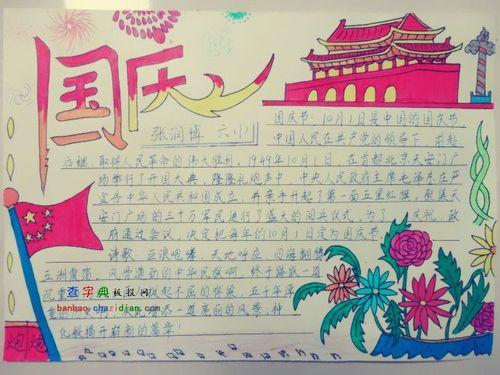 国庆
张润博 六(1)
国庆节：10月1日是中国的国庆节，
中国人民在共产党的领导下 前赴
后继，取得人民革命的伟大胜利，1949年10月1日，在首都北京天安门广
场举行了开国大典，隆隆礼炮声中 中央人民政府主席毛泽东在声
宣告中华人民共和国成立，并亲手升起了第一面五星红旗。聚集天
安门广场的三十万军民进行了盛大的阅兵仪式。为了 庆祝，政
府通过会议，决定把每年的10月1日定为国庆节。
诗歌 巨浪咆哮，天地呼应，四海翻腾
五洲震荡，风掌遒劲的中华民族啊，终于
沉重 起不屈的脊梁，五千年
一道亮丽的风景，神
化敦揭开崭新的篇章！
查字典板报网
banbao.chazidian.com
炮 炮